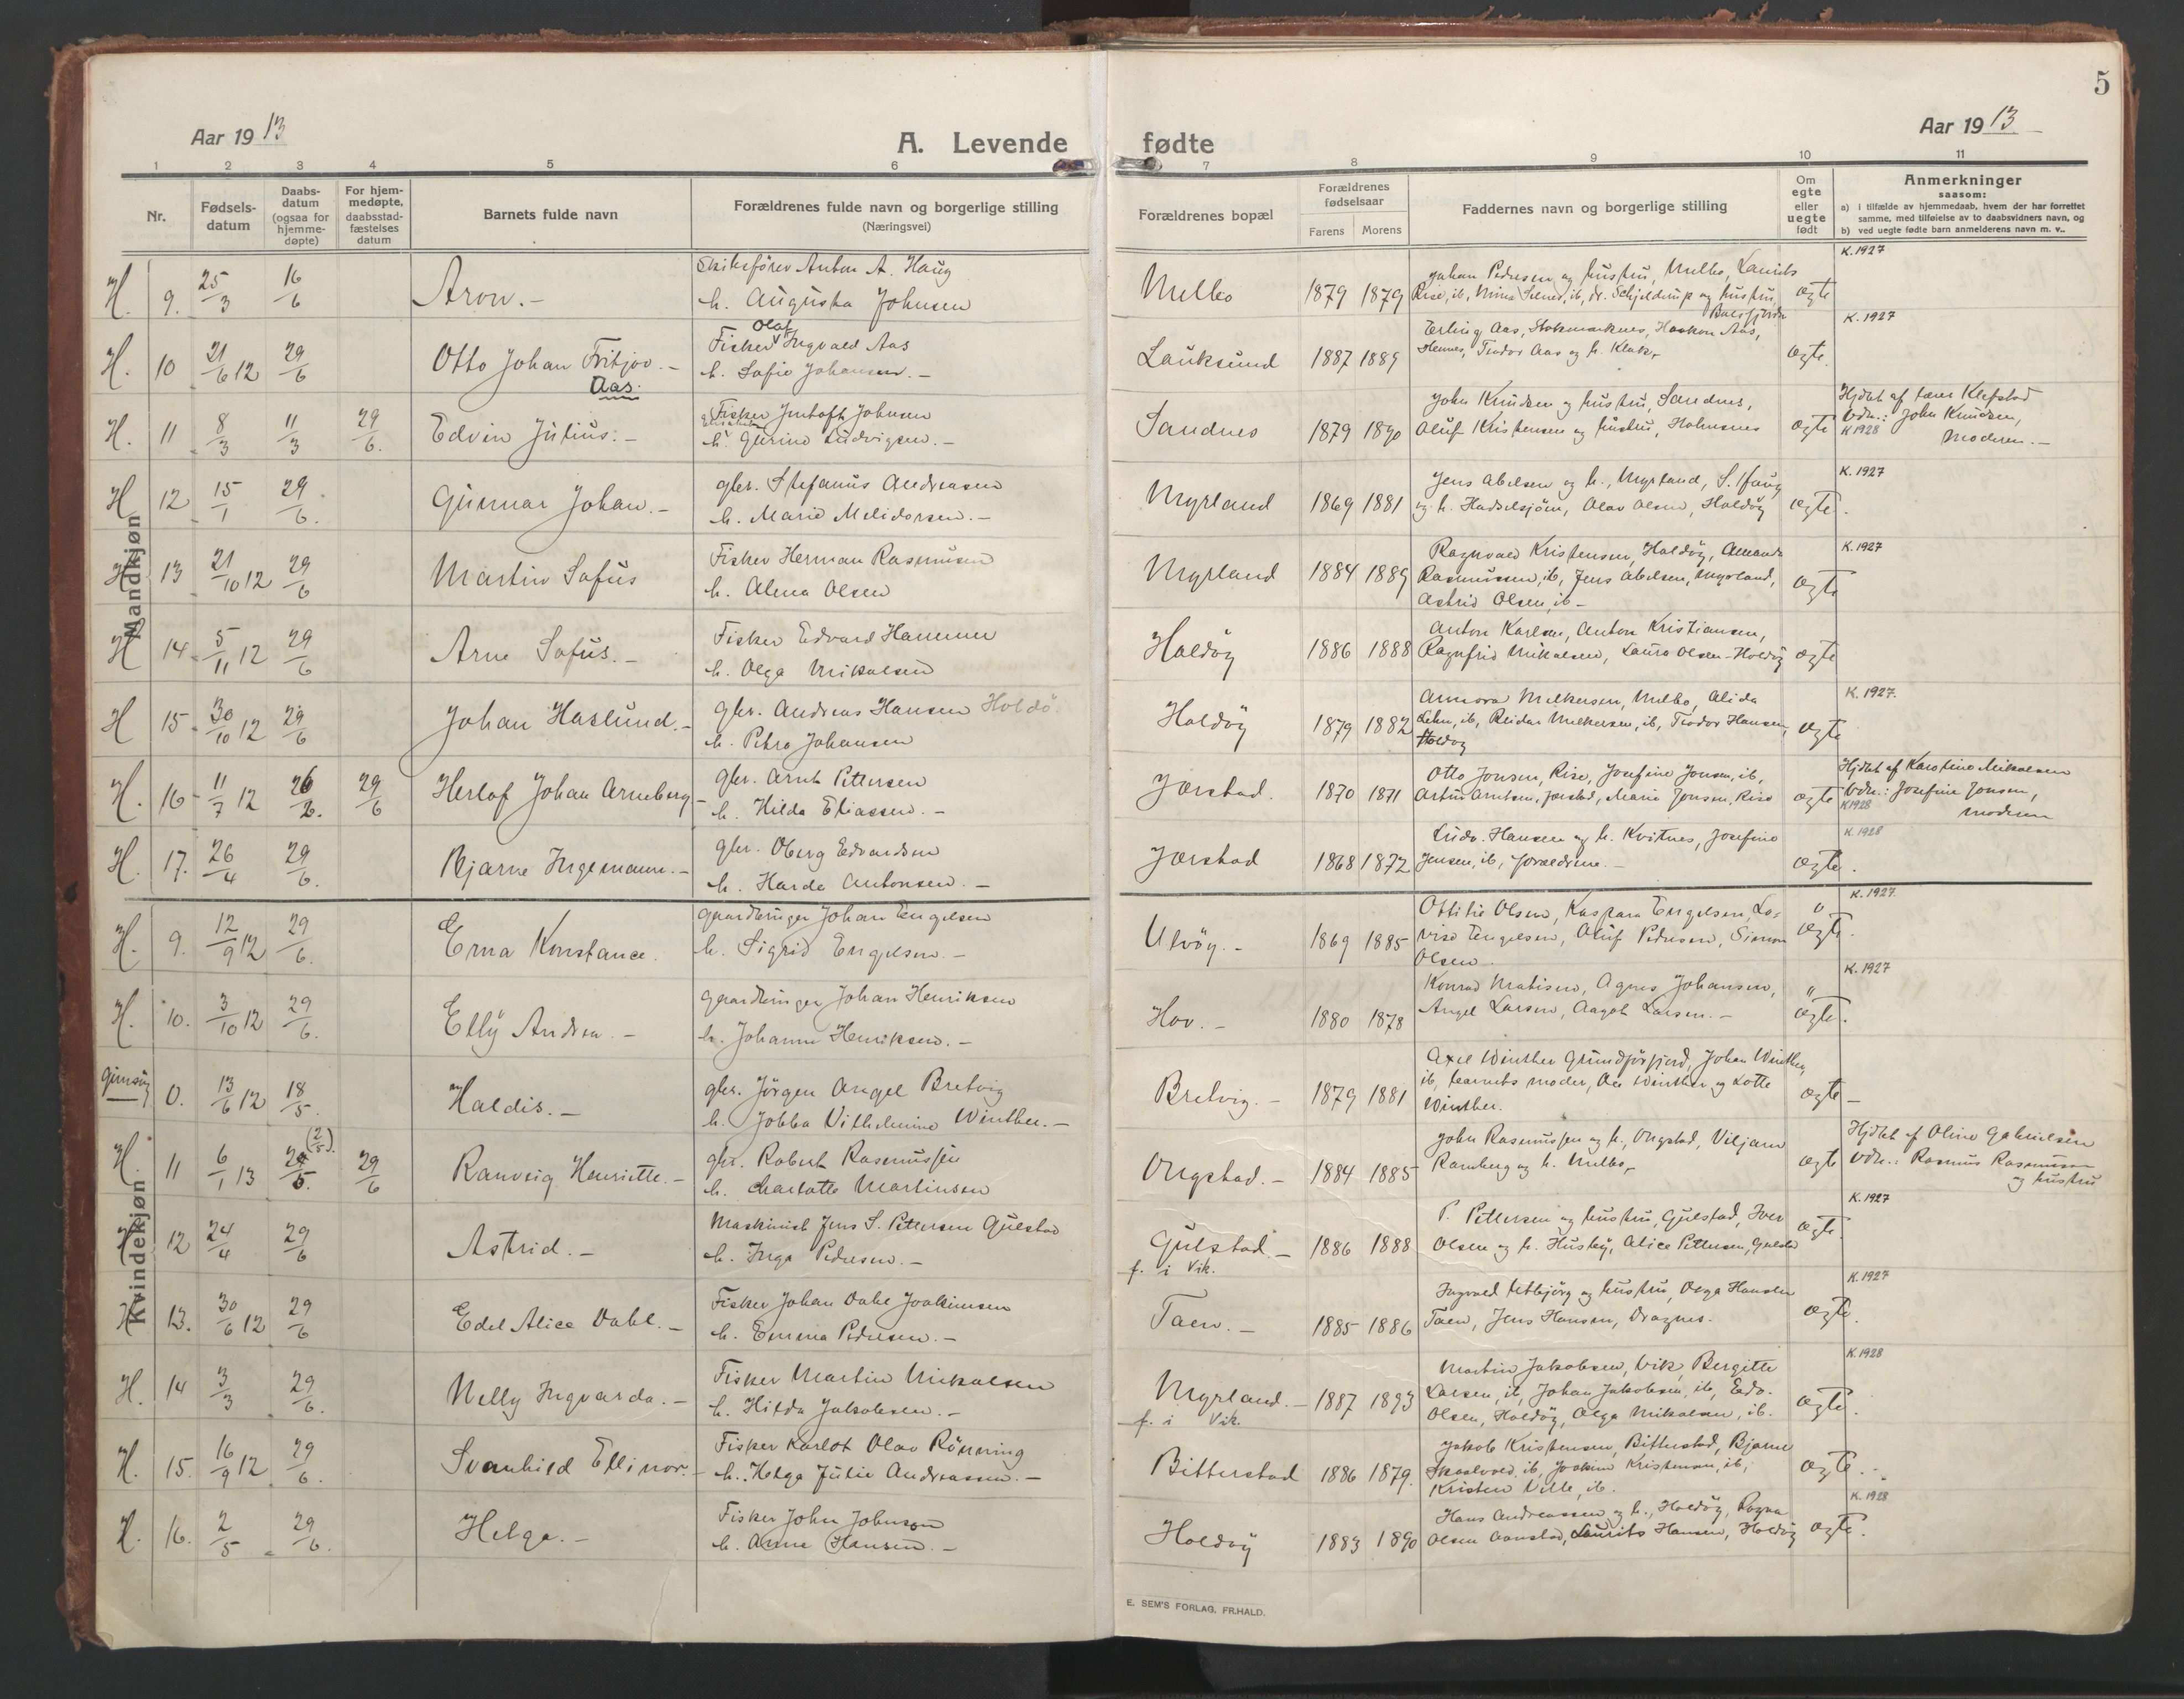 5
Aar 1913
A. Levende fødte
Aar 1913
1 2 3 4 5 6 7 8 9 10 11
Nr.
Fødsels-
datum
Daabs-
datum
(ogsaa for
hjemme-
døpte)
For hjem-
medøpte,
daabsstad-
fæstelses
datum
Barnets fulde navn
Forældrenes fulde navn og borgerlige stilling
(Næringsvei)
Forældrenes bopæl
Forældrenes
fødselsaar
Farens Morens
Faddernes navn og borgerlige stilling
Om
egte
eller
uegte
født
Anmerkninger
saasom:
a) i tilfælde av hjemmedaab, hvem der har forrettet
samme, med tilføielse av to daabsvidners navn, og
b) ved uegte fødte barn anmelderens navn m. v..
Mandkjøn
H. 9. 25/3 16/6 Aron.- Anton A. Haug
h. Augusta Johnsen
Melbo 1879 1879 Johan Pedersen og hustru, Melbo, Laurits
Rise, ib, dr. Schjelderup og hustru, ægte
K. 1927
H. 10 21/6 12 29/6 Otto Johan Fritjov.-
Aas.
Olaf
Fisker Ingvald Aas
h. Sofie Johansen.-
Lauksund 1887 1889 Erling Aas, Stokmarknes, Haakon Aas,
Hennes, Teodor Aas og h. ægte.
K. 1927
H. 11 8/3 11/3 29/6. Edvin Julius.- Fisker Johnsen
h. Gurine Ludvigsen.-
Sandnes 1879 1890 John Knudsen og hustru, Sandnes,
Oluf Kristensen og hustru, Holmsnes ægte
Hjdbt af lærer Klefstad
Vdn.: John Knudsen,
K 1928 Moderen.-
H 12 15/1 29/6. Gunnar Johan.- gbr. Stefanus Andreasen
h. Marie Melidorsen.-
Myrland 1869 1881 Jens Abelsen og h., Myrland, S. Haug
og h. Olav Olsen, Holdöy ægte.
K. 1927
H 13 21/10 12 29/6 Martin Sofus Fisker Herman Rasmusen
h. Alma Olsen
Myrland 1884 1889 Ragnvald Kristensen, Holdöy, Amanda
Rasmussen, ib, Jens Abelsen, Myrland,
Astrid Olsen, ib - ægte
K. 1927
H 14 5/11 12 29/6 Arne Sofus.- Fisker Edvard Hammer
h. Olga Mikalsen
Holdöy 1886 1888 Anton Karlsen, Anton Kristiansen,
Ragnfrid Mikalsen, Laura Olsen - Holdöy ægte
H 15 30/10 12 29/6 Johan Haslund.- gbr. Andreas Hansen Holdö.
h. Petra Johansen
Holdöy 1879 1882 Annora Melkersen, Melbo, Alida
Lehn, ib, Reidar Melkersen, ib, Teodor Hansen,
Holdöy ægte
K. 1927.
H. 16 11/7 12 26/2. 29/6 Herlof Johan Arneberg gbr. Arnt Pettersen
h. Hilda Eliassen.-
Jørstad. 1870 1871 Otto Jonsen, Rise, Josefine Jonsen, ib,
Artur Arntsen, Jørstad, Marie Jonsen, Rise ægte
Hjdbt af Karoline Mikalsen
Vdn.: Josefine Jonsen,
K1928 moderen
H. 17. 26/4 29/6. Bjarne Ingemann.- gbr. Oberg Edvardsen
h. Harda Antonsen.-
Jørstad 1868 1872 Ludv. Hansen og h. Kvitnes, Josefine
Jensen, ib, forældrene.- ægte.
K. 1928
Kvindekjøn
H. 9. 12/9 12 29/6. Erna Konstance. Johan Engelsen
h. Sigrid Engelsen.-
Ulvöy.- 1869 1885 Ottilie Olsen, Kaspara Engelsen, Lo-
vise Engelsen, Oluf Pedersen, Simon
Olsen. ægte.
K. 1927
H. 10. 3/10 12 29/6. Elly Andrea.- Johan Henriksen
h. Johanne Henriksen.-
Hov.- 1880 1878 Konrad Matisen, Agnes Johansen,
Angel Larsen, Aagot Larsen.- ægte.
K. 1927
Gimsöy 0. 13/6 12 18/5. Haldis.- gbr. Jörgen Angel Bretvig
h. Jobba Vilhelmine Winther.-
Bretvig.- 1879 1881 Axel Winther Johan Winther,
ib, barnets moder, Winther og Lotte
Winther. ægte -
H. 11 6/1 13 (2/5) 29/6 Ranveig Henriette.- gbr. Robert Rasmussen
h. Charlotte Martinsen
Ongstad.- 1884 1885 John Rasmussen og h., Ongstad, Viljam
Ramberg og h. Melbo, ægte
Hjdbt af Oline Gabrielsen
Vdn.: Rasmus Rasmussen
og hustru
H 12 24/4 29/6 Astrid.- Maskinist Jens S. Pettersen Gulstad
h. Inga Pedersen.-
Gulstad.- 1886 1888
f. i Vik.
P. Pettersen og hustru, Gulstad, Iver
Olsen og h. Husby, Alice Pettersen, Gulstad ægte.
K. 1927
H 13. 30/6 12 29/6 Edel Alice Dahl.- Fisker Johan Dahl Joakimsen
h. Emma Pedersen.-
Taen.- 1885 1886 Ingvald og hustru, Olga Hansen
Taen, Jens Hansen, Dragnes. ægte.
K. 1927
H. 14 3/3 29/6. Nelly Ingvarda.- Fisker Martin Mikalsen
h. Hilda Jakobsen.-
Myrland.- 1887 1893
f. i Vik.
Martin Jakobsen, Vik, Bergitte
Larsen, ib, Johan Jakobsen, ib, Edv.
Olsen, Holdöy, Olga Mikalsen, ib. ægte.
K. 1928
H. 15. 16/9 12 29/6. Svanhild Ellinor.- Fisker Karlot Olav Rönning
h. Helga Julie Andreassen.-
Bitterstad 1886 1879. Jakob Kristensen, Bitterstad, Bjarne
ib, Joakim Kristensen, ib,
Kristen Ville, ib. ægte.-
H. 16. 2/5 29/6. Helga.- Fisker John Johnson
h. Anna Hansen.-
Holdöy 1883 1890 Hans Andreassen og h., Holdöy, Ragna
Olsen Laurits Hansen, Holdöy ægte.
K. 1928
E. SEM'S FORLAG, FR.HALD.